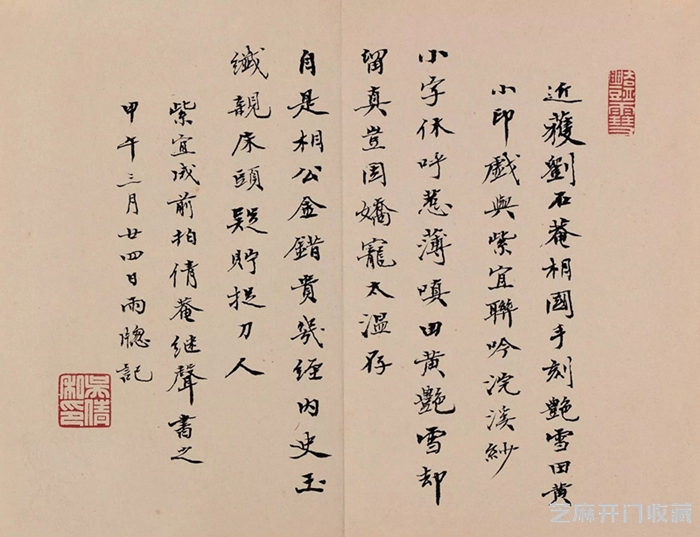 近獲劉石菴相國手刻艷雪田黃
小印戲與紫宜聯吟浣溪紗
小字休呼惹薄嗔田黃艷雪却
留真豈因嬌寵太溫存
自是相公金錯貴幾經內史玉
纖親床頭疑貯捉刀人
紫宜成前拍倩菴继聲書之
甲午三月廿四日雨牕記
吳倩私印
芝麻开门收藏